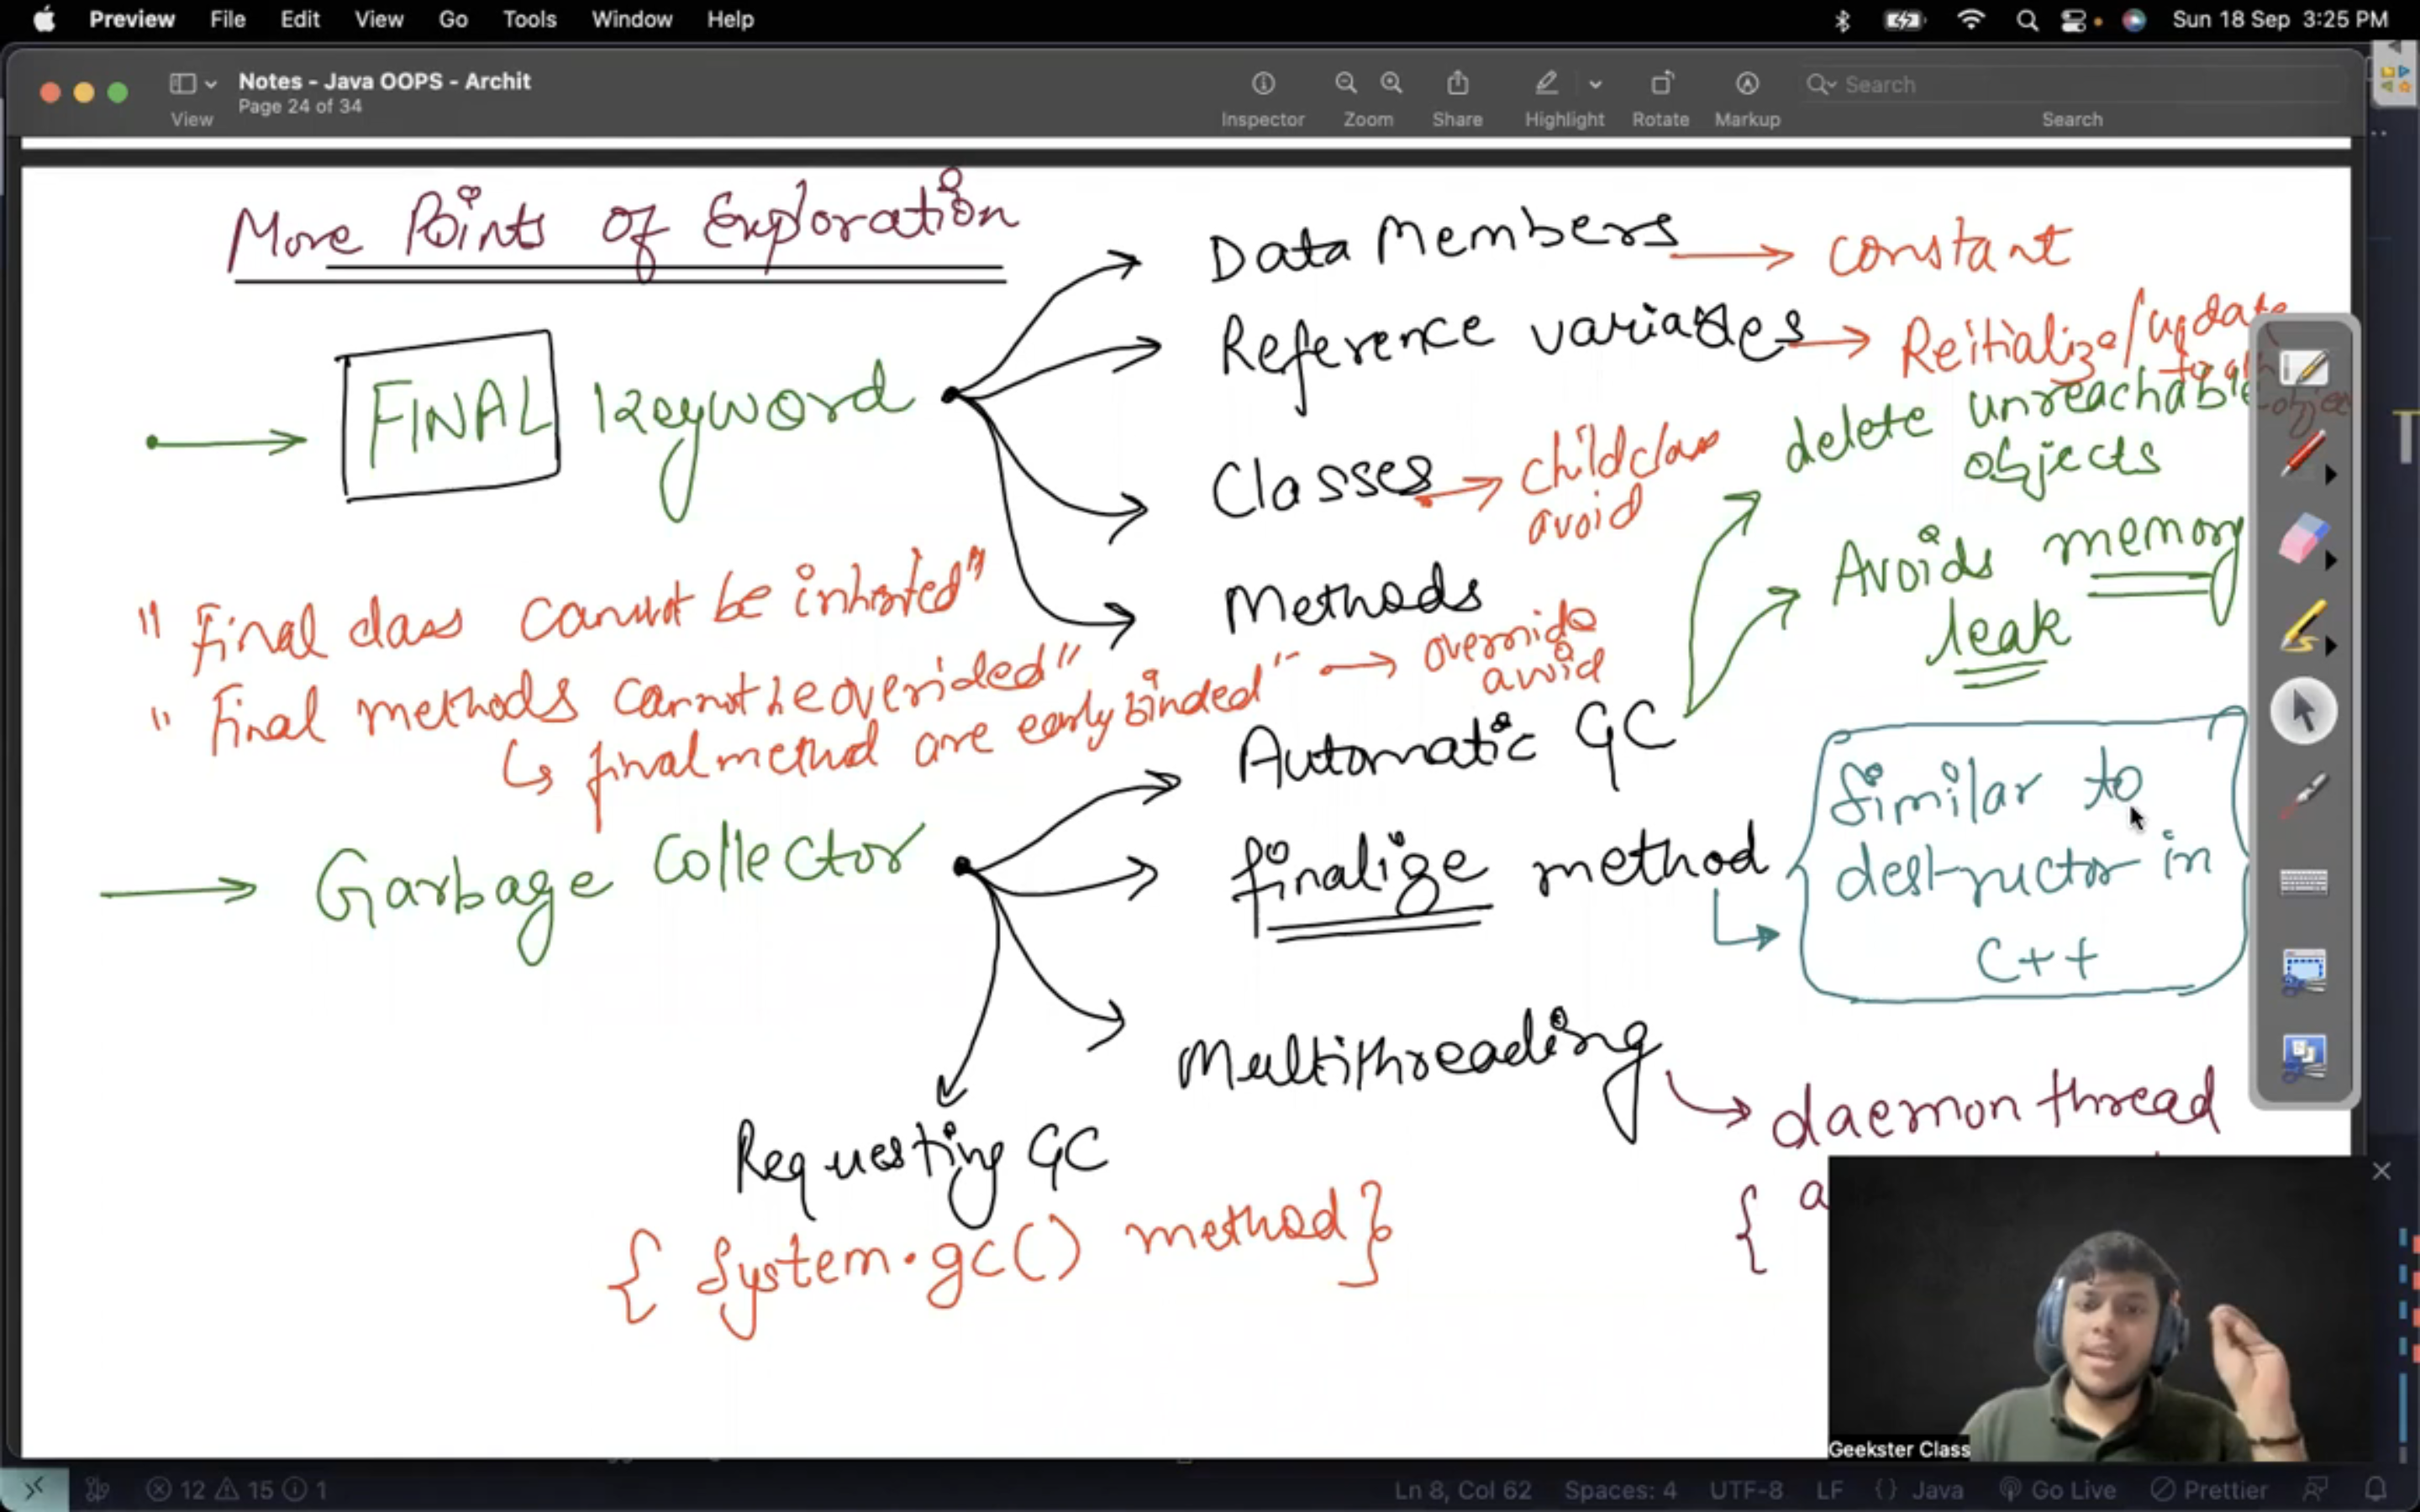 Preview File Edit View Go Tools Window Help Sun 18 Sep 3:25 PM
Notes - Java OOPS - Archit
Page 24 of 34
View Inspector Zoom Share Highlight Rotate Markup Search
Search
More Points of Exploration
FINAL keyword
Data Members → constant
Reference variables → Reitialize/update
Classes → child class
avoid
Methods → override
avoid
"Final class cannot be inherited"
"Final methods cannot be overided"
↳ final method are early binded"
delete unreachable
objects
Avoids memory
leak
Garbage Collector
Automatic GC
finalize method
Similar to
destructor in
C++
Multithreading
daemon thread
{ a
Requesting GC
{ System.gc() method}
Geekster Class
12 15 1 Ln 8, Col 62 Spaces: 4 UTF-8 LF {} Java Go Live Prettier